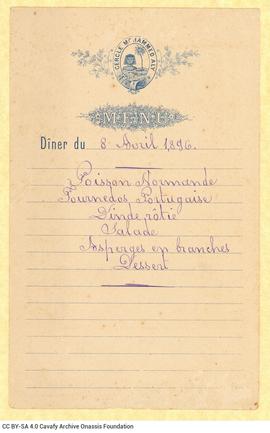 CERCLE MOHAMMED ALY
MENU
Dîner du 8 Avril 1896.
Poisson Normande
Tournedos Portugaise
Dinde rôtie
Salade
Asperges en branches
Dessert
CC BY-SA 4.0 Cavafy Archive Onassis Foundation